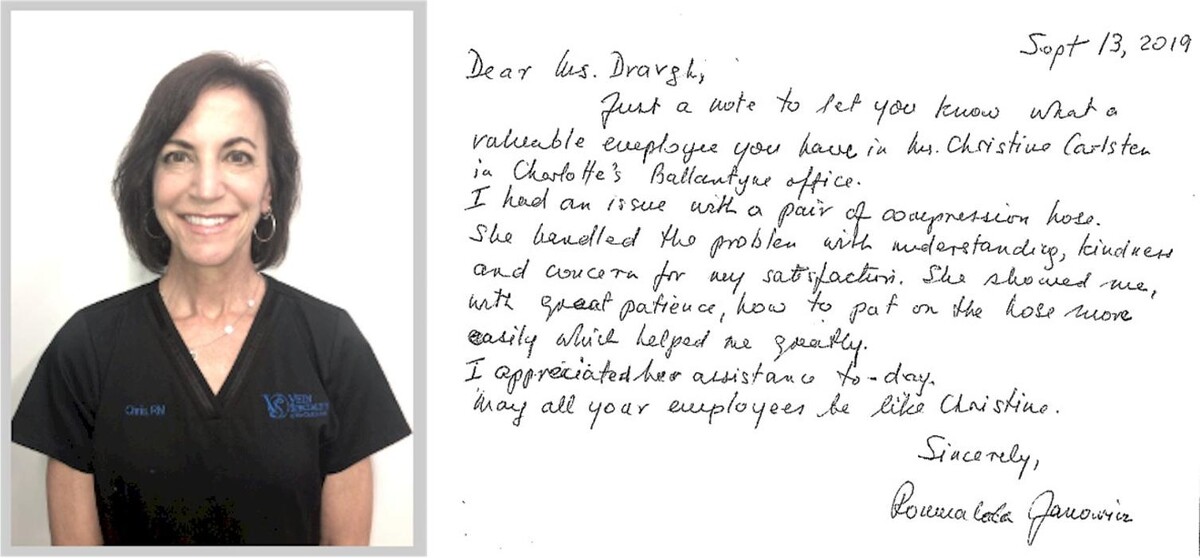 Chris, RN
VEIN
SPECIALISTS
Sept 13, 2019
Dear Ms. Dravgh,
Just a note to let you know what a
valuable employee you have in Ms. Christine Carlsten
in Charlotte's Ballantyne office.
I had an issue with a pair of compression hose.
She handled the problem with understanding, kindness
and concern for my satisfaction. She showed me,
with great patience, how to put on the hose more
easily which helped me greatly.
I appreciated her assistance to-day.
May all your employees be like Christine.
Sincerely,
Janowicz